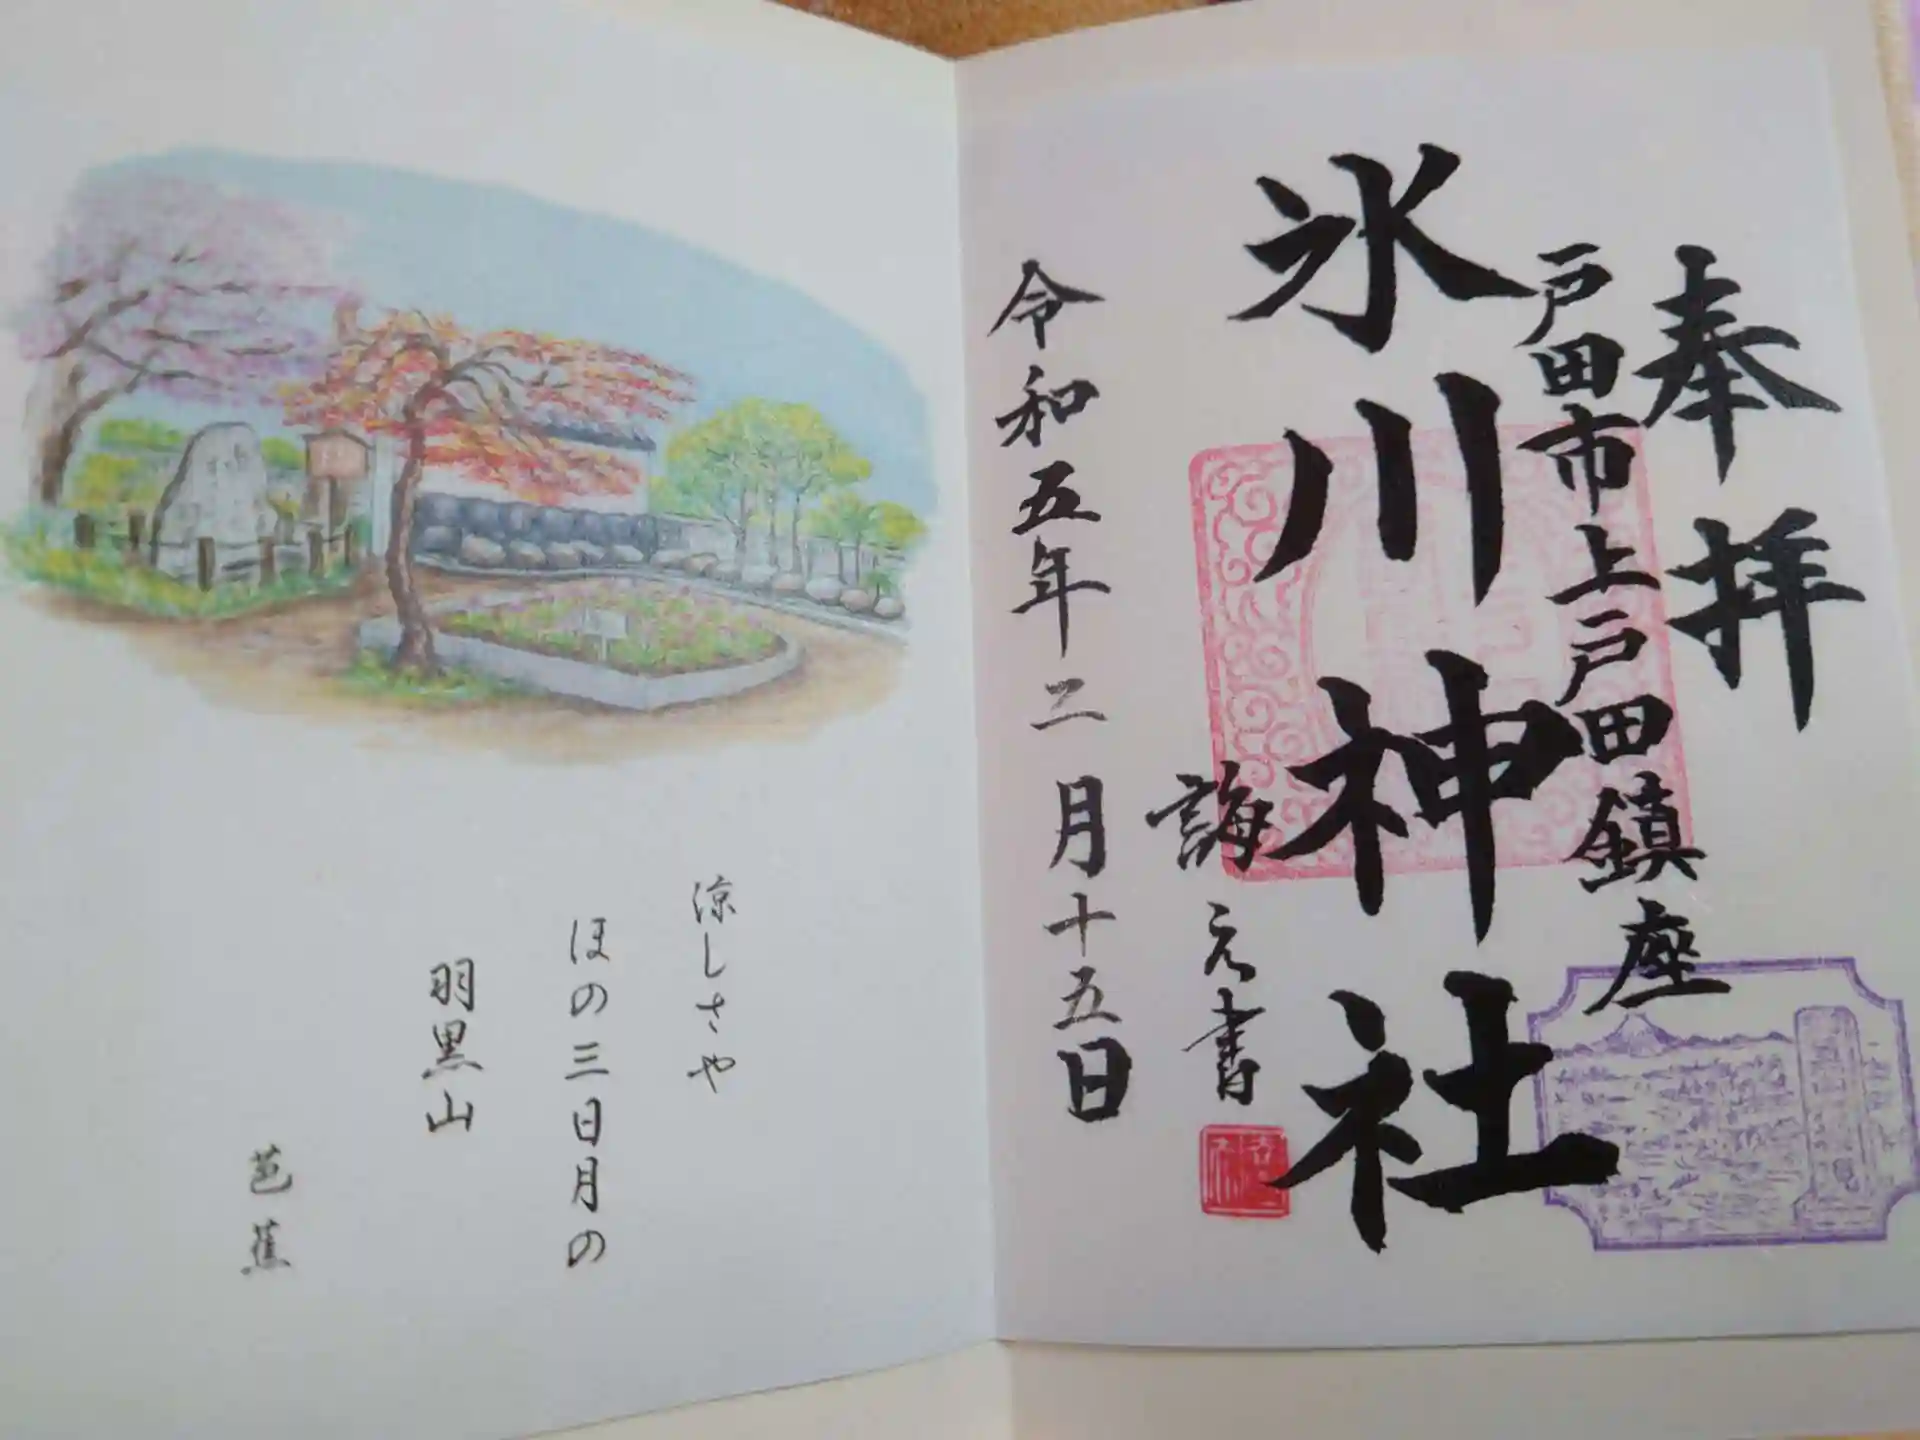 奉拝
戸田市上戸田鎮座
氷川神社
誨元書
令和五年二月十五日
涼しさや
ほの三日月の
羽黒山
芭蕉